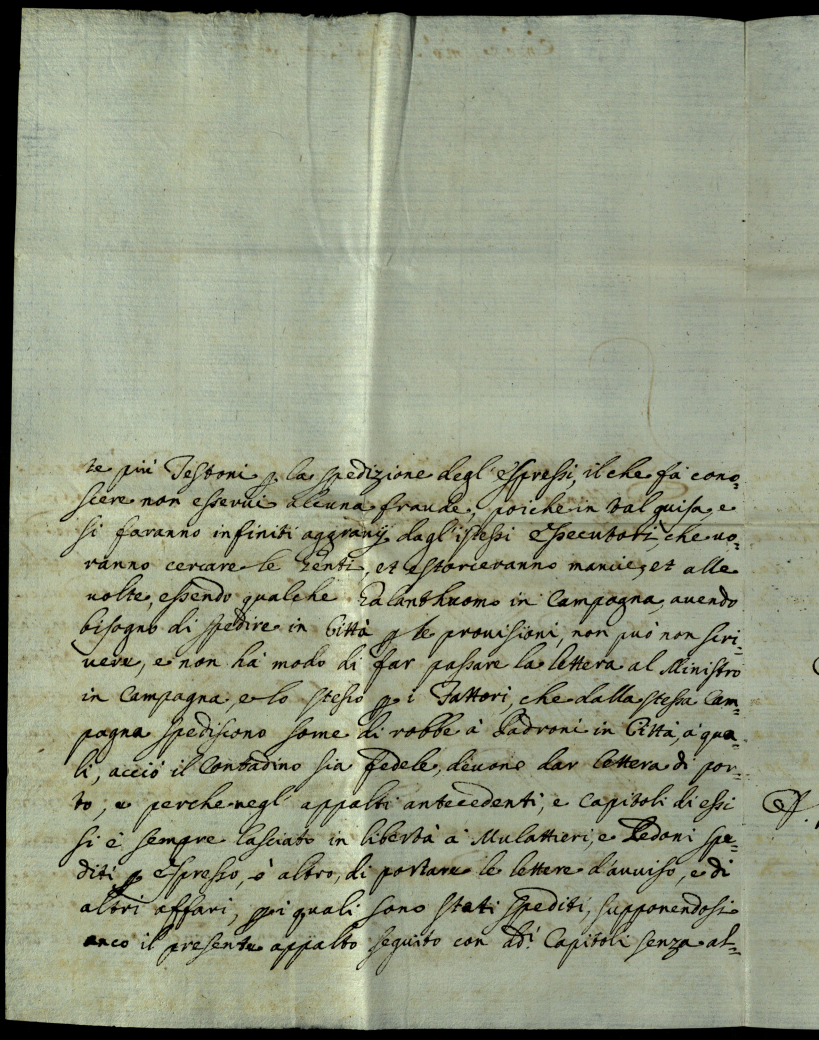 te più Testoni p la spedizione degl'espressi, il che fà cono=
scere non esserui alcuna fraude, poiche in tal guisa, e
si faranno infiniti aggrauij dagl'istessi essecutori, che uo=
ranno cercare le genti, et estorceranno mancie, et alle
uolte, essendo qualche Galanthuomo in Campagna, auendo
bisogno di spedire in Città p le prouisioni, non può non scri=
uere, e non hà modo di far passare la lettera al Ministro
in Campagna, e lo stesso p i Fattori, che dalla stessa Cam=
pagna spediscono some di robbe à Padroni in Città, a qua=
li, acciò il Contadino sia fedele, deuono dar lettera di por=
to, e perche negl'appalti antecedenti, e capitoli di essi
si è sempre lasciato in libertà à Mulattieri, e Pedoni spe=
diti p espresso, ò altro, di portare le lettere d'auuiso, e di
altri affari, p i quali sono stati spediti, supponendosi
anco il presente appalto seguito con dd.i Capitoli senza al=